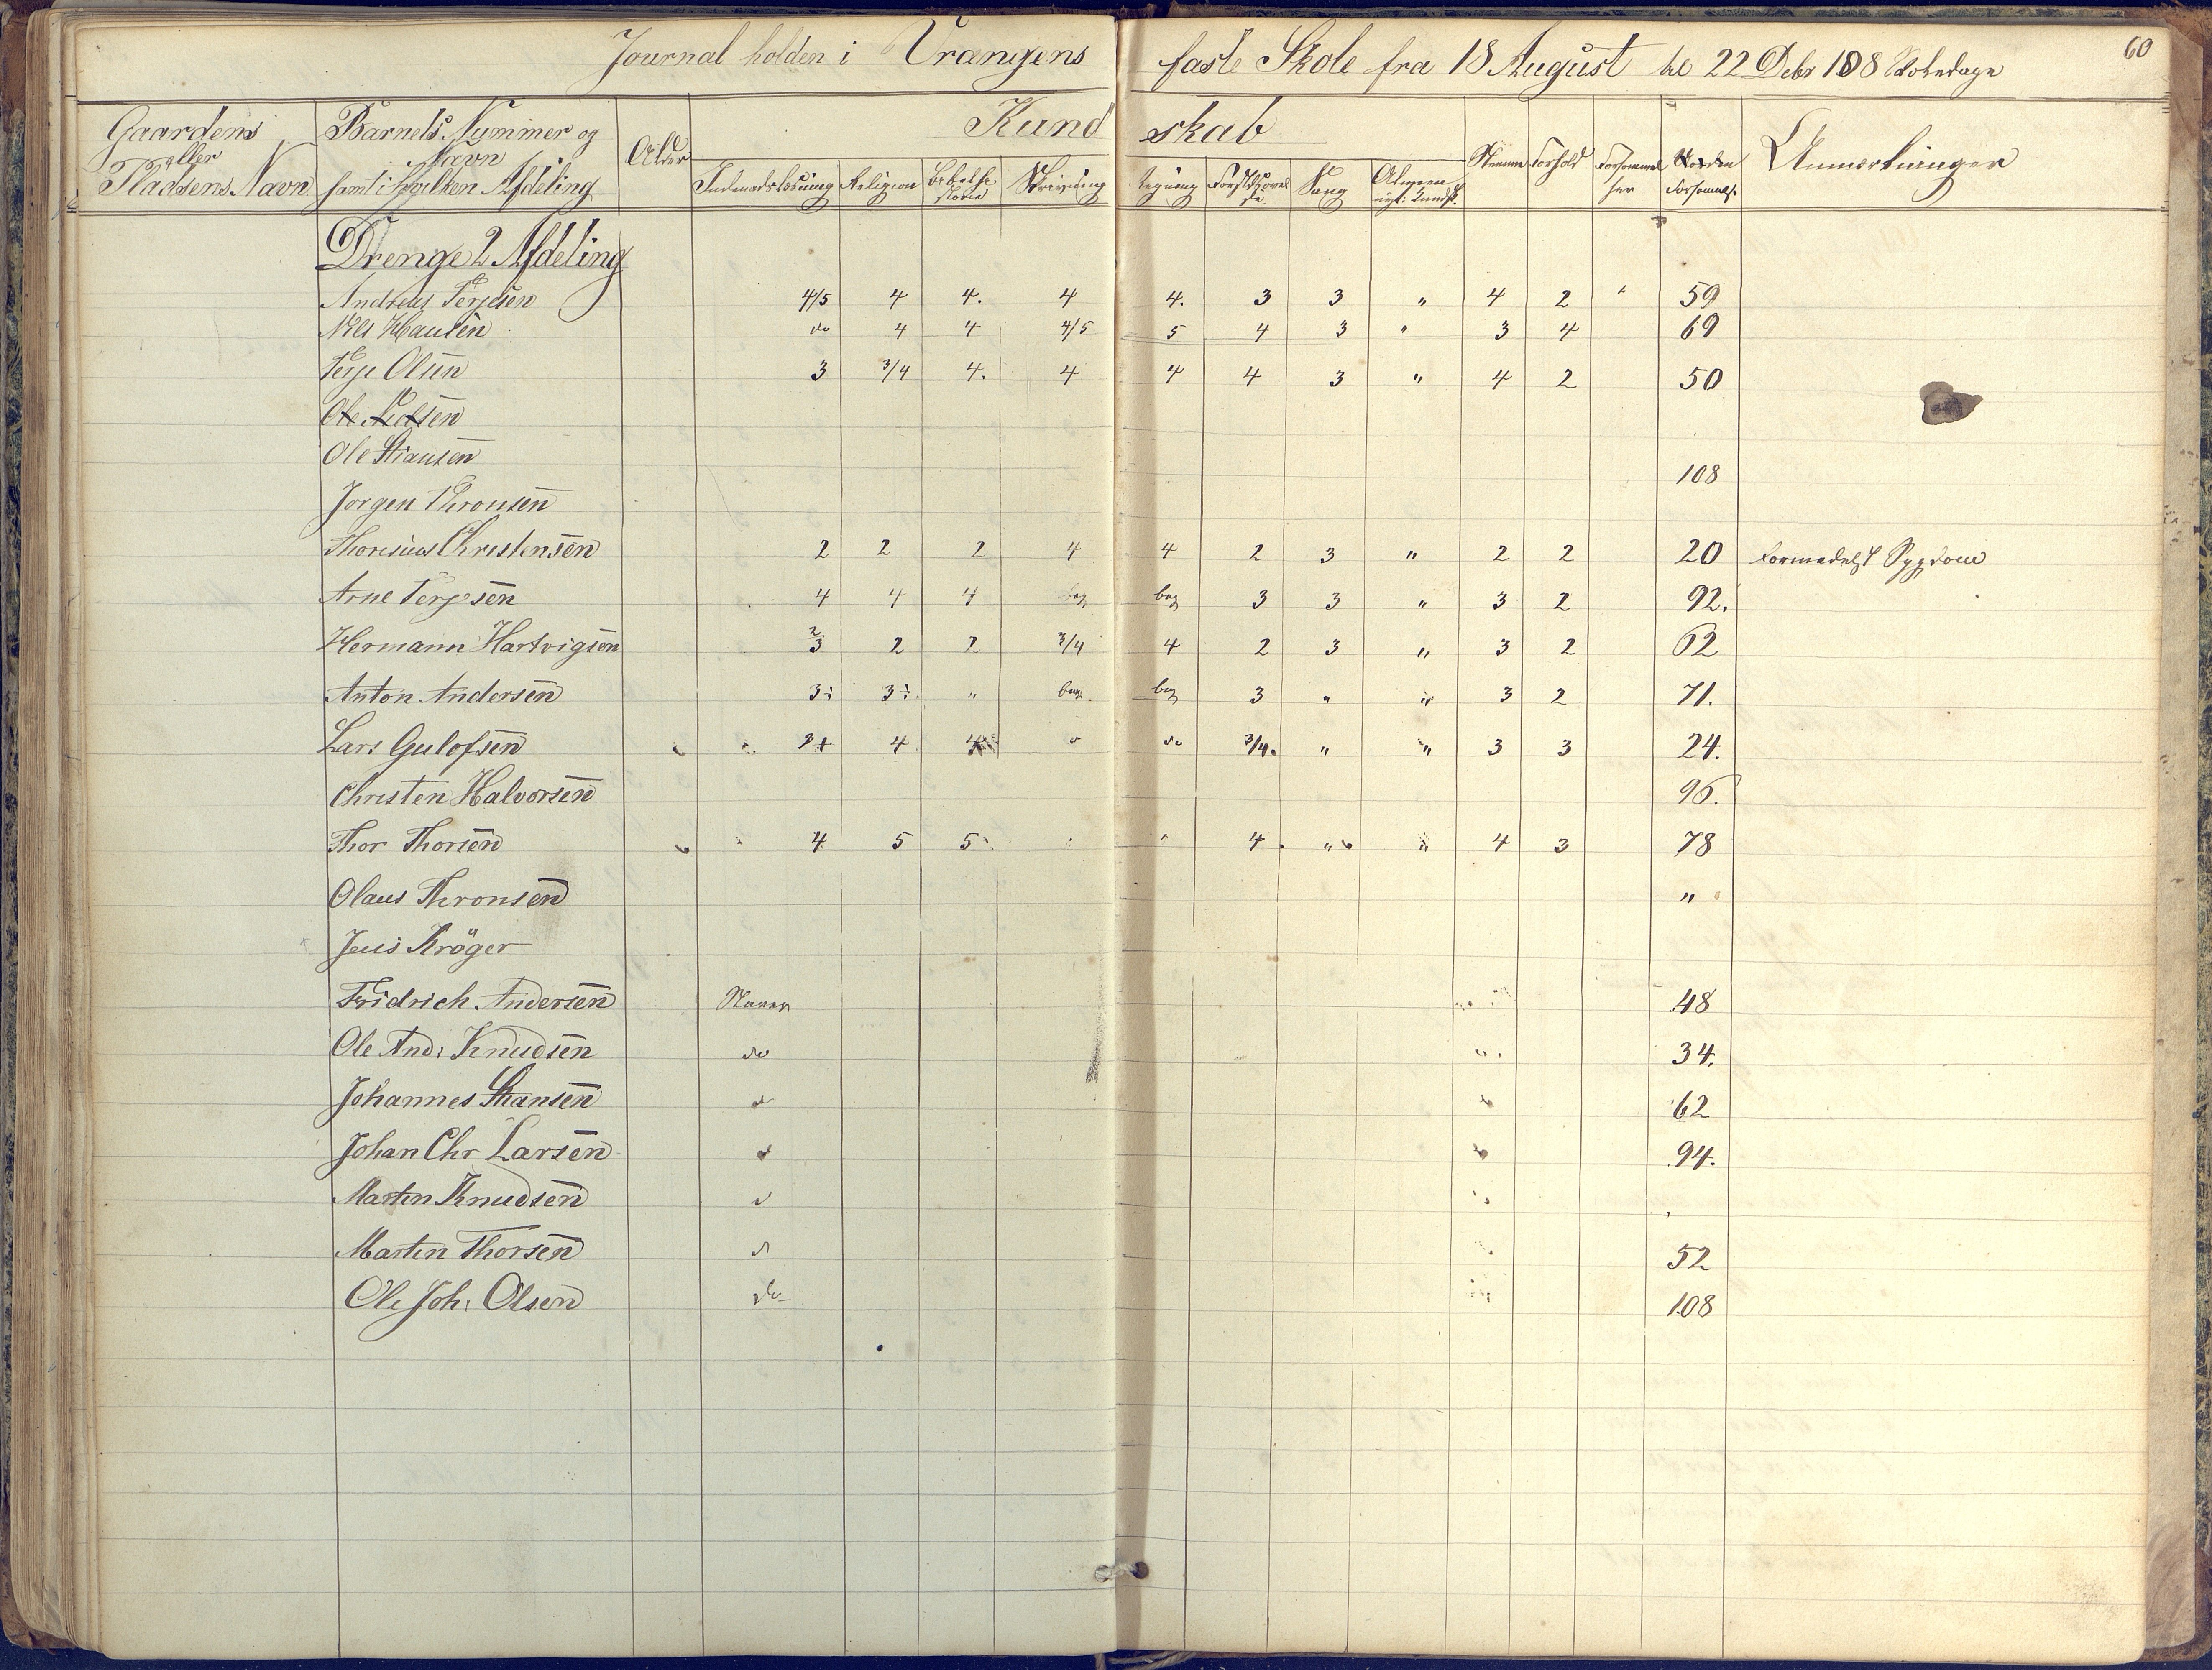 60
Journal holden i Vrangens faste Skole fra 18 August til 22 Debr 108 Skoledage
Gaardens eller Pladsens Navn
Barnets Nummer og Navn samt i hvilken Afdeling
Alder
Kundskab
Indenadslæsning Religion Bibelhistorie Skrivning Regning Sang
Stemme Forhold Forsømmelser Anmærkninger
Drenge 2 Afdeling
Andreas Terjesen 4/5 4 4. 4 4. 3 3 " 4 2 " 59
Nils Hansen do 4 4 4/5 5 4 3 " 3 4 69
Terje Olsen 3 3/4 4. 4 4 4 3 " 4 2 50
Ole Nielsen
Ole Stiansen 108
Jørgen Thronsen
Christensen 2 2 2 4 4 2 3 " 2 2 20 Formedelst Sygdom
Arne Terjesen 4 4 4 beg beg 3 3 " 3 2 92.
Hermann Hartvigsen 2/3 2 2 3/4 4 2 3 " 3 2 62
Anton Andersen 3÷ 3÷ " beg. beg 3 " " 3 2 71.
Lars Gulofsen 3+ 4 do 3/4 " " 3 3 24.
Christen Halvorsen 96.
Thor Thorsen 4 5 5 4 " " 4 3 78
Olaus Thronsen "
Jens Kröger
Fridrich Andersen Staver 48
Ole And: Knudsen do 34.
Johannes Stiansen do 62
Johan Chr Larsen 94.
Martin Knudsen
Martin Thorsen 52
Ole Joh: Olsen do 108